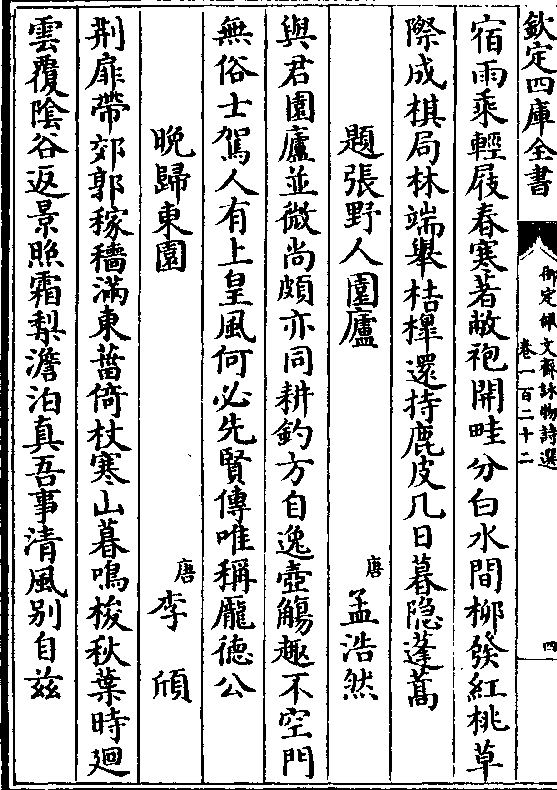 欽定四庫全書
御定佩文齋詠物詩選
卷一百二十二
四
宿雨乘輕屐春寒著敝袍開畦分白水間柳發紅桃草
際成棋局林端舉桔橰還持鹿皮几日暮隠蓬蒿
題張野人園廬
唐 孟浩然
與君園廬並微尚頗亦同耕釣方自逸壺觴趣不空門
無俗士駕人有上皇風何必先賢傳唯稱龐德公
晚歸東園
唐 李頎
荆扉帶郊郭稼穡滿東菑倚杖寒山暮鳴梭秋葉時廻
雲覆陰谷返景照霜梨澹泊真吾事清風别自兹